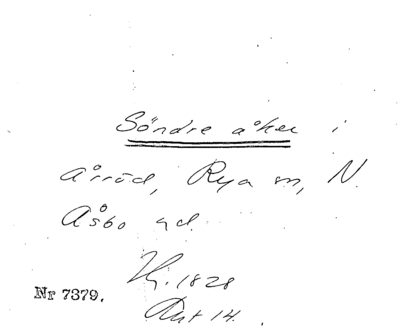 Söndre åker i
Årröd, Rya sn, N.
Åsbo hd.
Hj. 1828
Akt 14.
Nr 7379.